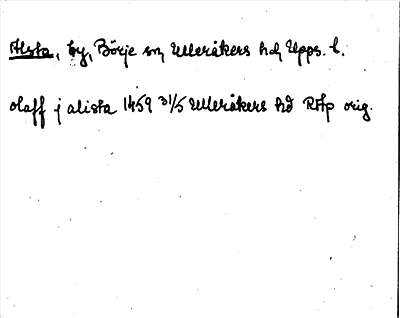 Alsta, by, Börje sn, Ulleråkers hd, Upps. l.
olaff j alista 1459 31/5 Ulleråkers hd RAp orig.